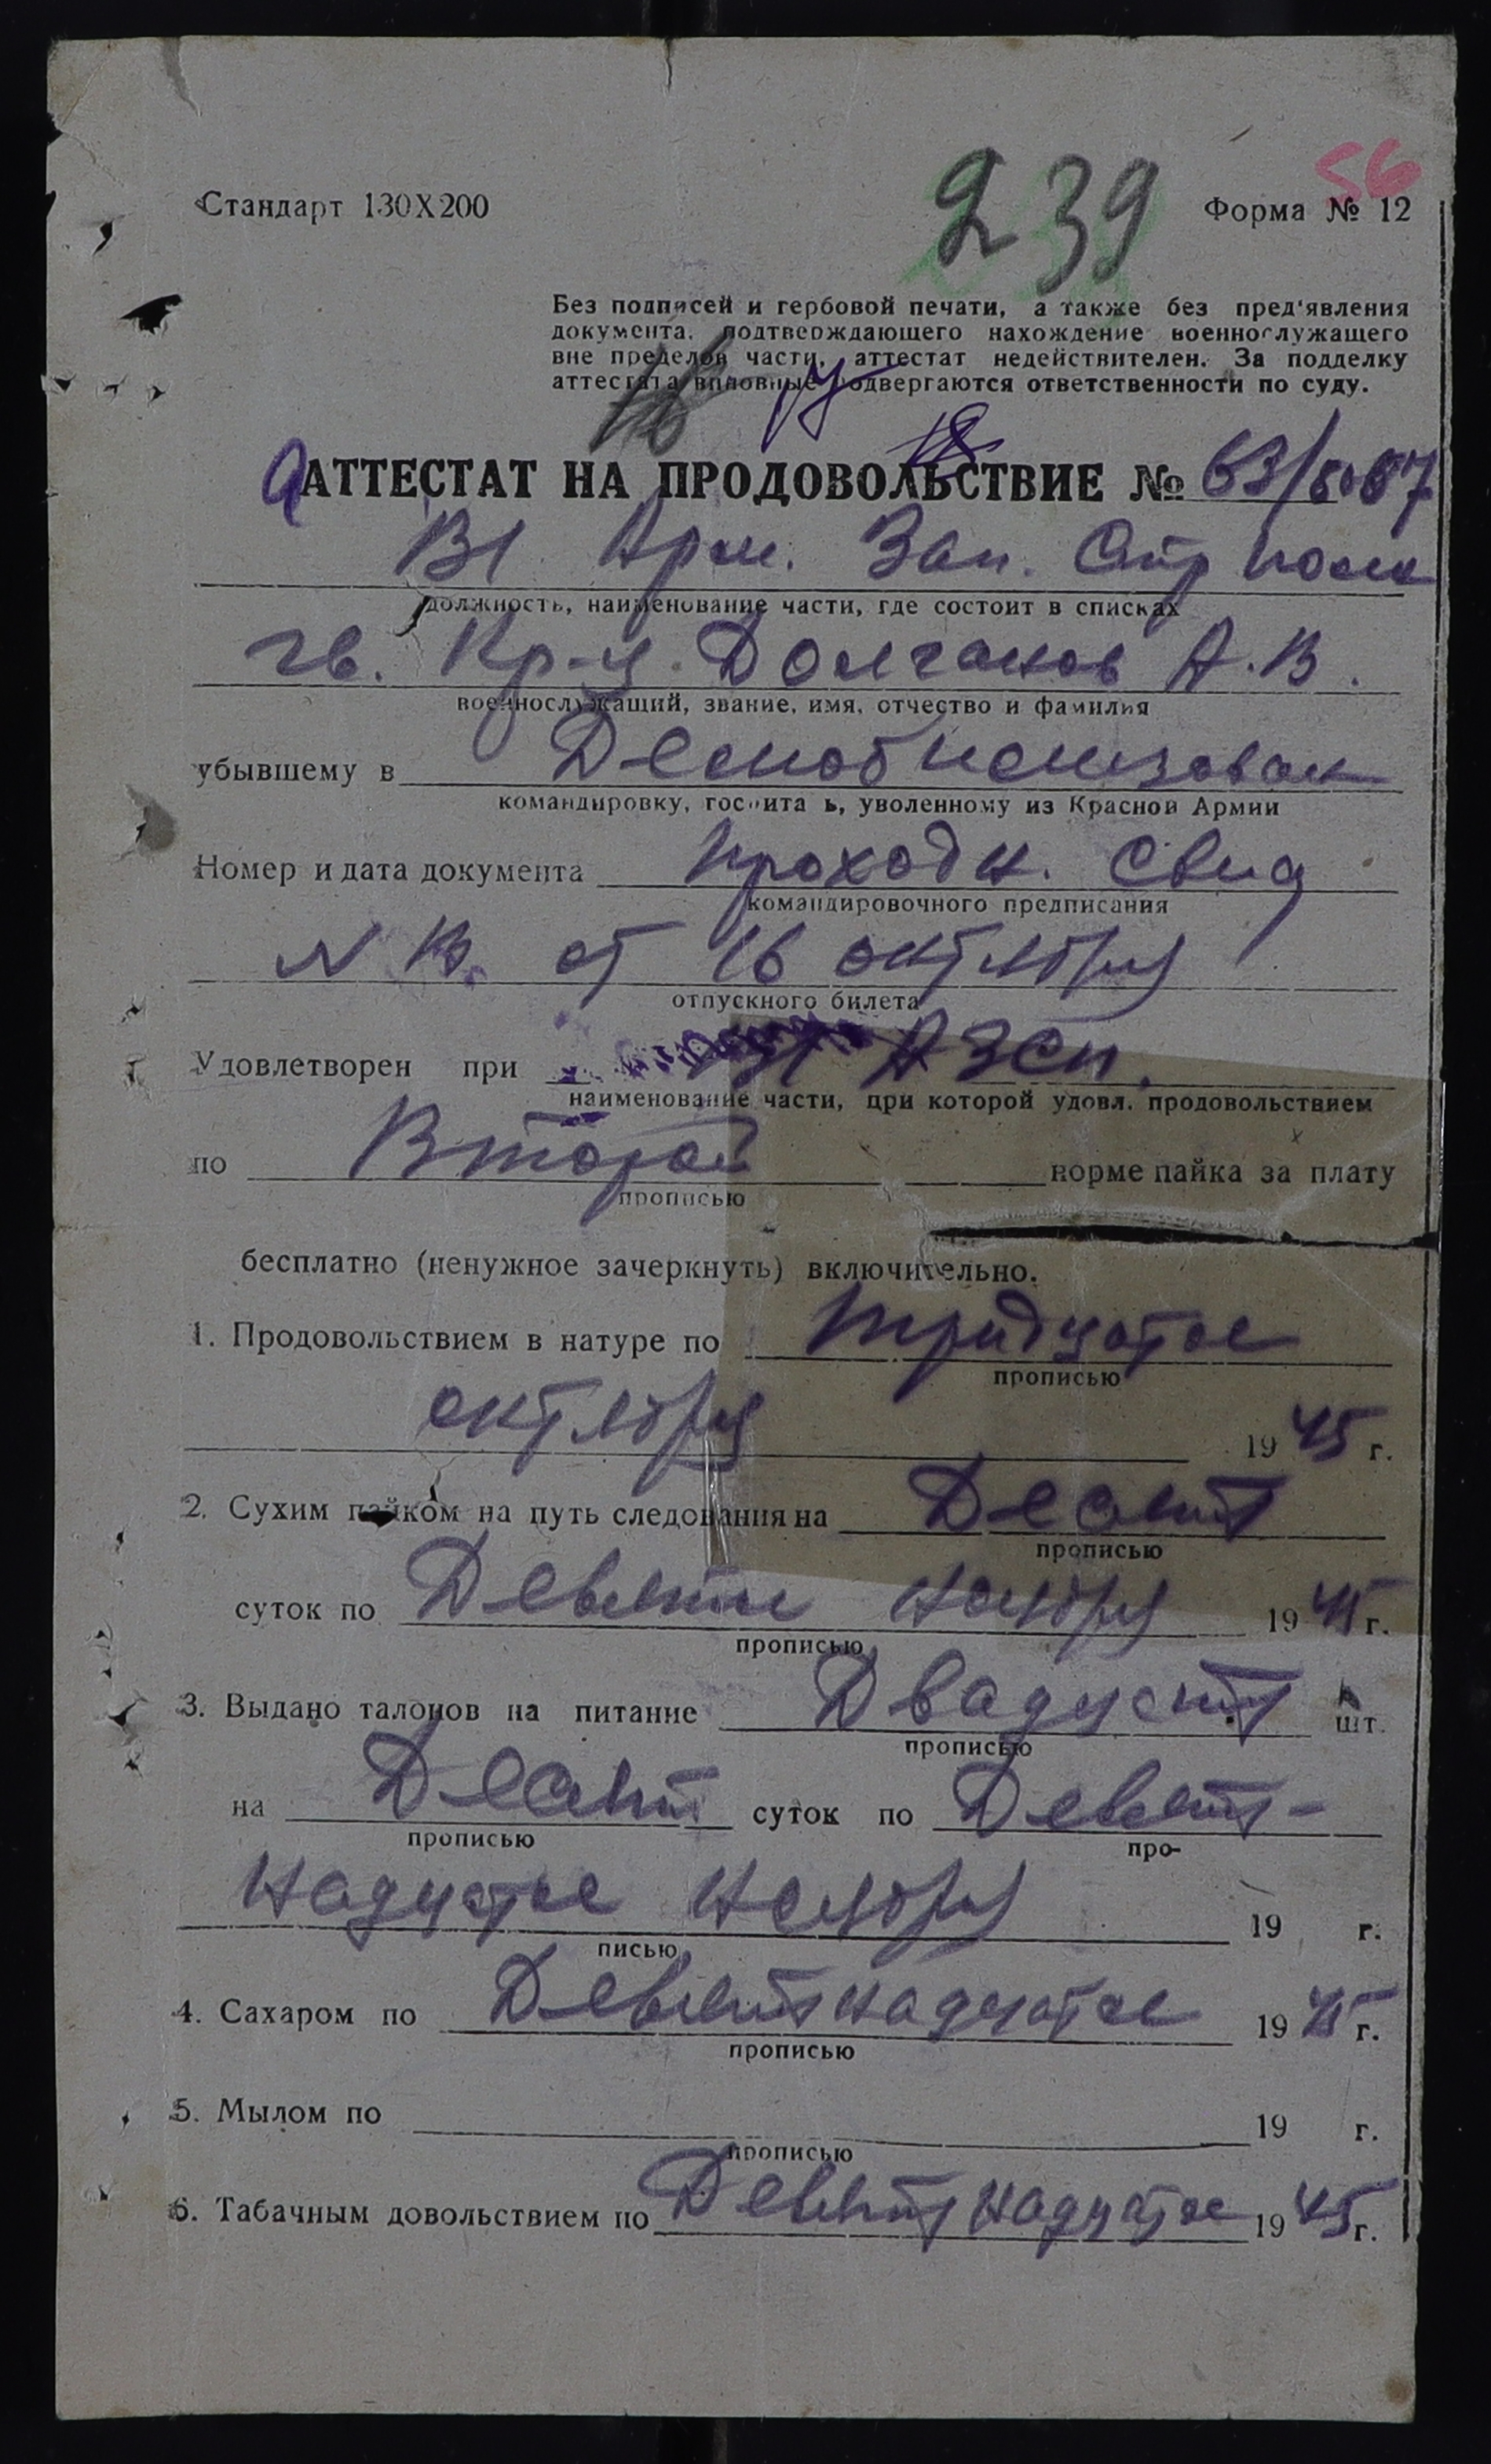 56
239
Стандарт 130X200
Форма № 12
Без подписей и гербовой печати, а также без пред'явления
документа, подтверждающего нахождение военнослужащего
вне пределов части, аттестат недействителен. За подделку
аттестата виновные подвергаются ответственности по суду.
АТТЕСТАТ НА ПРОДОВОЛЬСТВИЕ № 63/
Арм. Зап. Стр полк
должность, наименование части, где состоит в списках
гв. Кр-ц. Долганов А. В.
военнослужащий, звание, имя, отчество и фамилия
убывшему в Демобилизован
командировку, госпиталь, уволенному из Красной Армии
Номер и дата документа проходн. свид
командировочного предписания
от 16 октября
отпускного билета
Удовлетворен при АЗСП.
наименование части, при которой удовл. продовольствием
по Второй норме пайка за плату
прописью
бесплатно (ненужное зачеркнуть) включительно.
1. Продовольствием в натуре по тридцатое
прописью
октября 1945 г.
2. Сухим пайком на путь следования на Десять
прописью
суток по Девятое ноября 1945 г.
прописью
3. Выдано талонов на питание Двадцать шт.
прописью
на Десять суток по Девят-
прописью про-
надцатое ноября 19 г.
писью
4. Сахаром по Девятнадцатое 1945 г.
прописью
5. Мылом по 19 г.
прописью
6. Табачным довольствием по Девятнадцатое 1945 г.